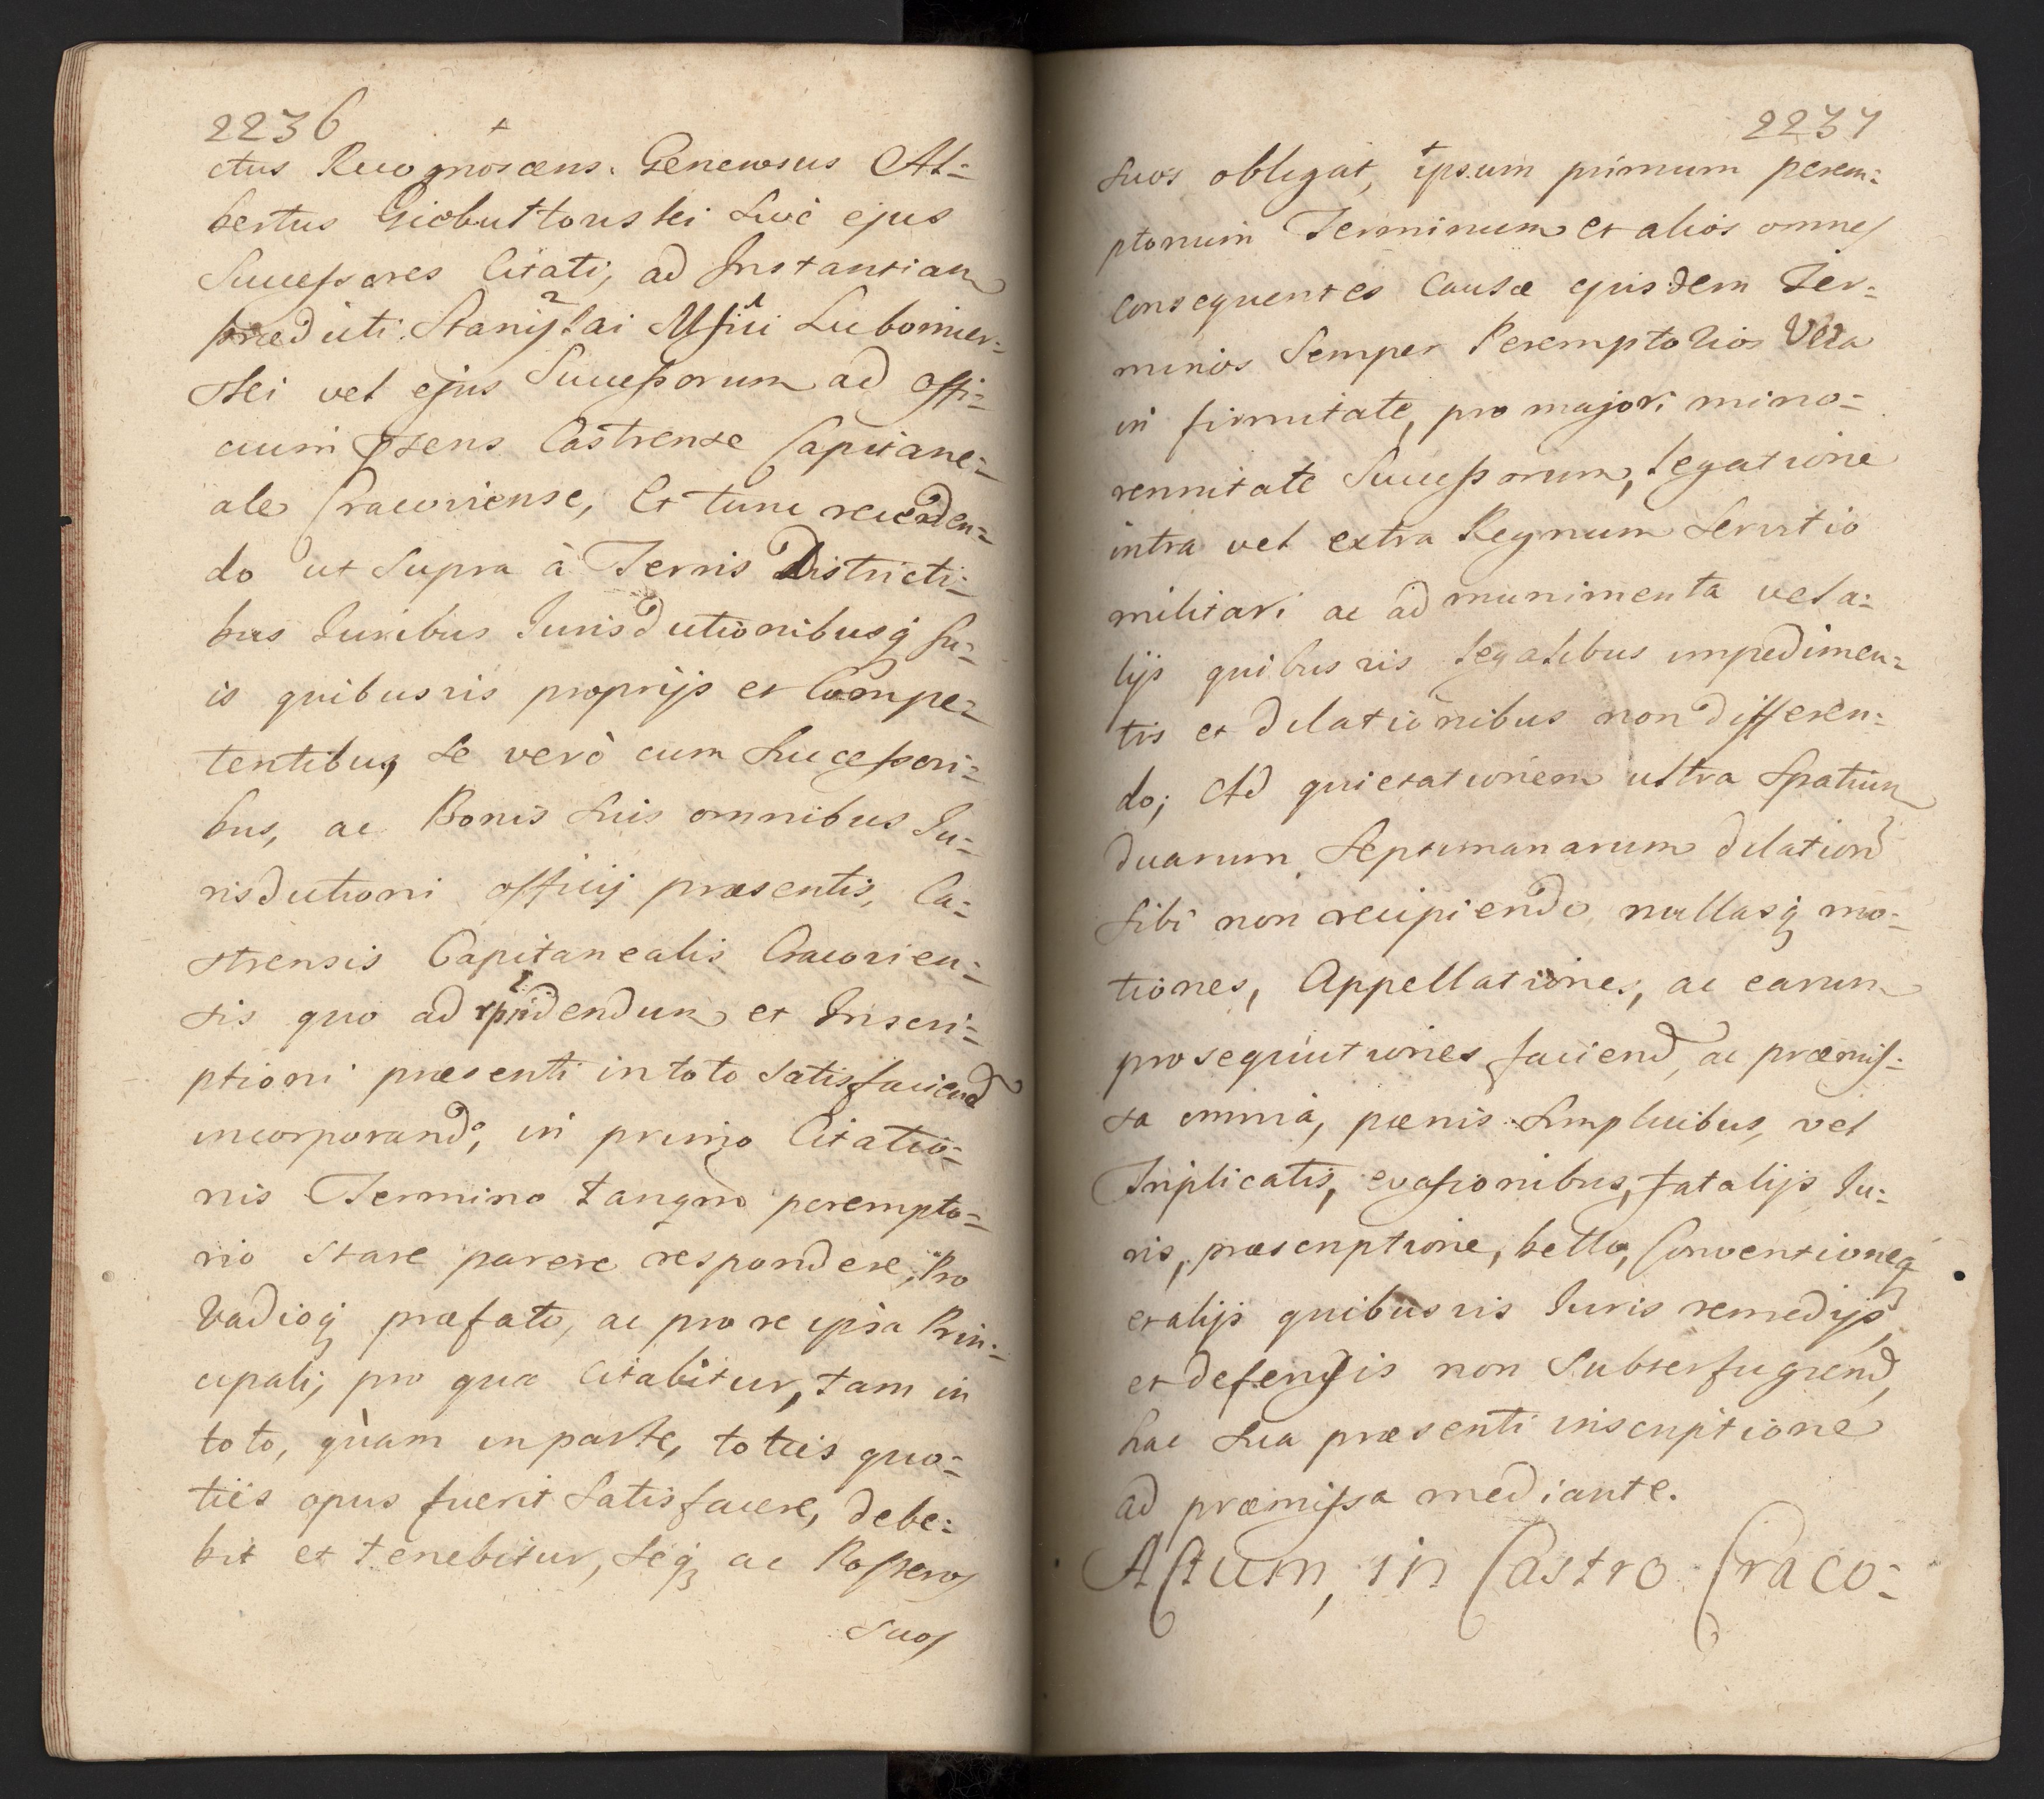 2236
ctus Recognoscens. Generosus Al=
bertus Giebuttowski Sivè ejus
Successores Citati, ad Instantiam
prædicti Stanislai Msfici Lubomier=
skei vel ejus Successorum ad offi=
cium Pskens Castrense Capitane=
ale Cracoviense, Et tunc receden=
do ut Supra à Terris Districti=
bus Iuribus Iurisdictionibusq; su=
is quibusvis proprijs et Compe=
tentibus, se verò cum Successori=
bus, ac Bonis suis omnibus Iu=
risdictioni officij præsentis, Ca=
strensis Capitanealis Cracovien=
sis quo ad rpndendum et Inscri=
ptioni præsenti in toto satisfaciend
incorporando, in primo Citatio=
nis Termino tanqm perempto=
rio stare parere respondere, Pro
Vadioq; præfato, ac pro re ipsa Prin=
cipali, pro qua citabitur, tam in
toto, quàm in parte, toties quo=
ties opus fuerit satisfacere, debe=
bit et tenebitur, seq; ac Posteros
suos
2237
suos obligat, ipsum primum perem=
ptorium Terminum et alios omnes
consequentes causæ ejusdem Ter=
minos semper Peremptorios Vera
in firmitate, pro majori mino=
rennitate Successorum, legatione
intra vel extra Regnum servitio
militari ac ad munimenta vel a=
lijs quibusvis legalibus impedimen=
tis et dilationibus non differen=
do; Ad quietationem ultra spatium
duarum septimanarum dilation
sibi non recipiendo nullasq; mo=
tiones, Appellationes, ac earum
prosequutiones faciend, ac præmis=
sa omnia, pœnis simplicibus, vel
Triplicatis, evasionibus, fatalijs Iu=
ris, præscriptione, bello, Conventioneq;
et alijs quibusvis Iuris remedijs
et defensis non subterfugiend,
hac sua præsenti inscriptione
ad præmissa mediante.
Actum, in Castro Craco=